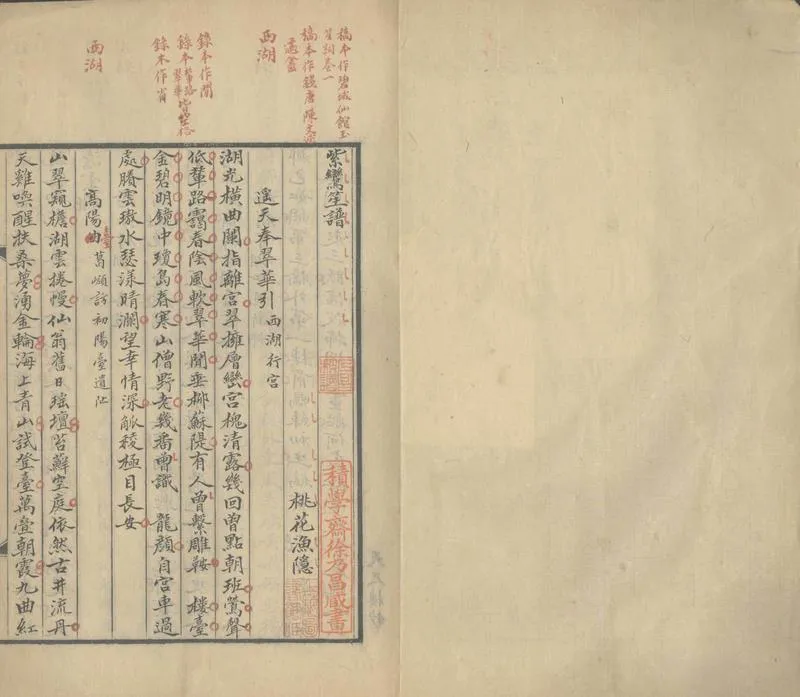 稿本作碧城仙館玉
笙詞卷一
稿本作錢唐陳文
西湖
錄本作聞
錄本輦路
錄本作省
西湖
紫鸞笙譜
桃花漁隱
積學齋徐乃昌藏書
遥天奉翠華引 西湖行宫
湖光橫曲闌指離宮翠擁層巒宮槐清露幾回曾點朝班鶯聲
低輦路靄春陰風軟翠華閒垂柳蘇隄有人曾繫雕鞍 樓臺
金碧明鏡中瓊島春寒山僧野老幾番曾識 龍顏自宮車過
處賸雲璈水瑟漾晴瀾望幸情深觚稜極目長安
高陽臺 葛嶺訪初陽臺遺址
山翠窺檐湖雲捲幔仙翁舊日瑶壇苔蘚空庭依然古井流丹
天雞喚醒扶桑夢湧金輪海上青山試登臺萬壑朝霞九曲紅